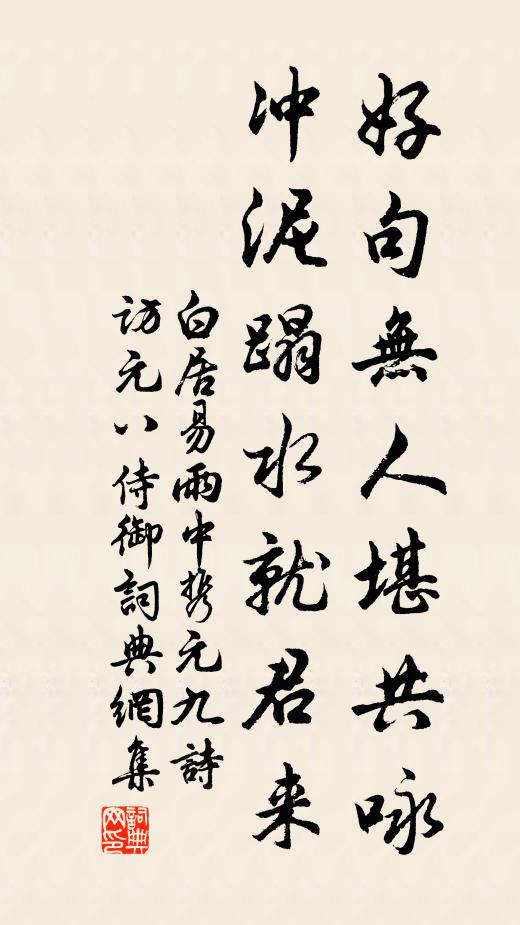 好句無人堪共咏
冲泥蹋水就君来
白居易雨中携元九詩
访元八侍御詞典網集
詞典網印